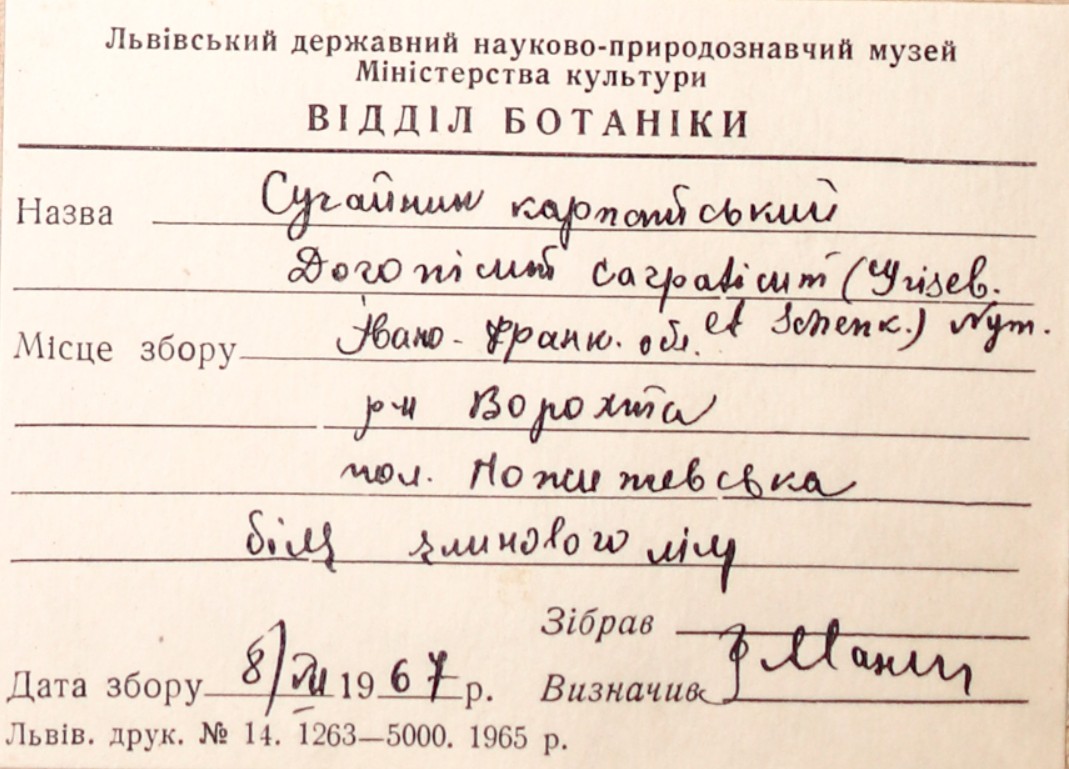 Львівський державний науково-природознавчий музей
Міністерства культури
ВІДДІЛ БОТАНІКИ
Назва Сугайник карпатський
Doronicum carpaticum (Griseb.
et Schenk.) Nym.
Місце збору Івано-Франк. обл.
р-н Ворохта
пол. Пожижевська
біля ялинового лісу
Зібрав
Дата збору 8/VII 1967 р. Визначив
Львів. друк. № 14. 1263—5000. 1965 р.